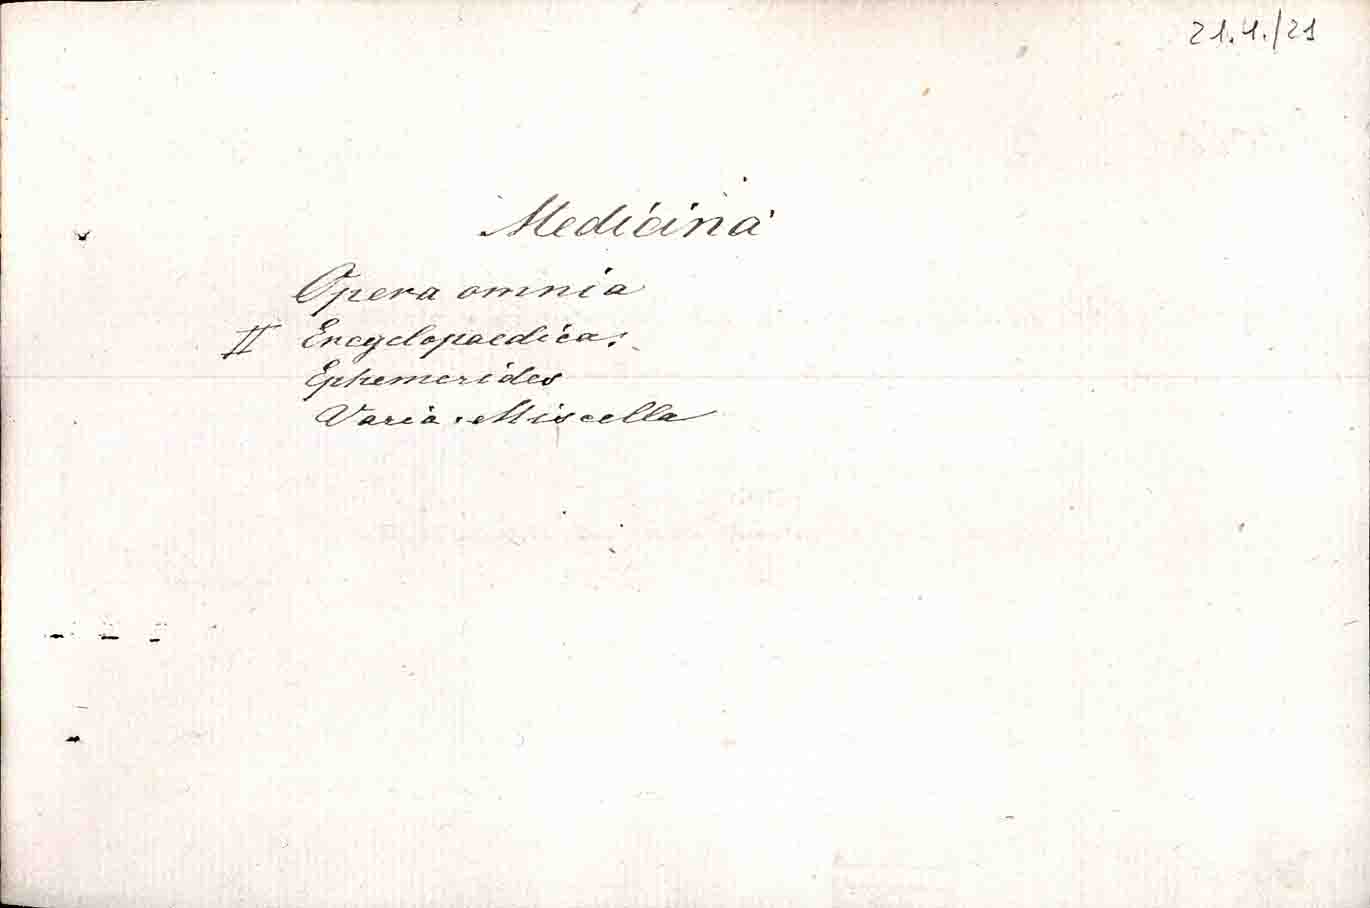 21.4./21
Medicina
Opera omnia
II Encyclopaedica.
Ephemerides
Varia. Miscella